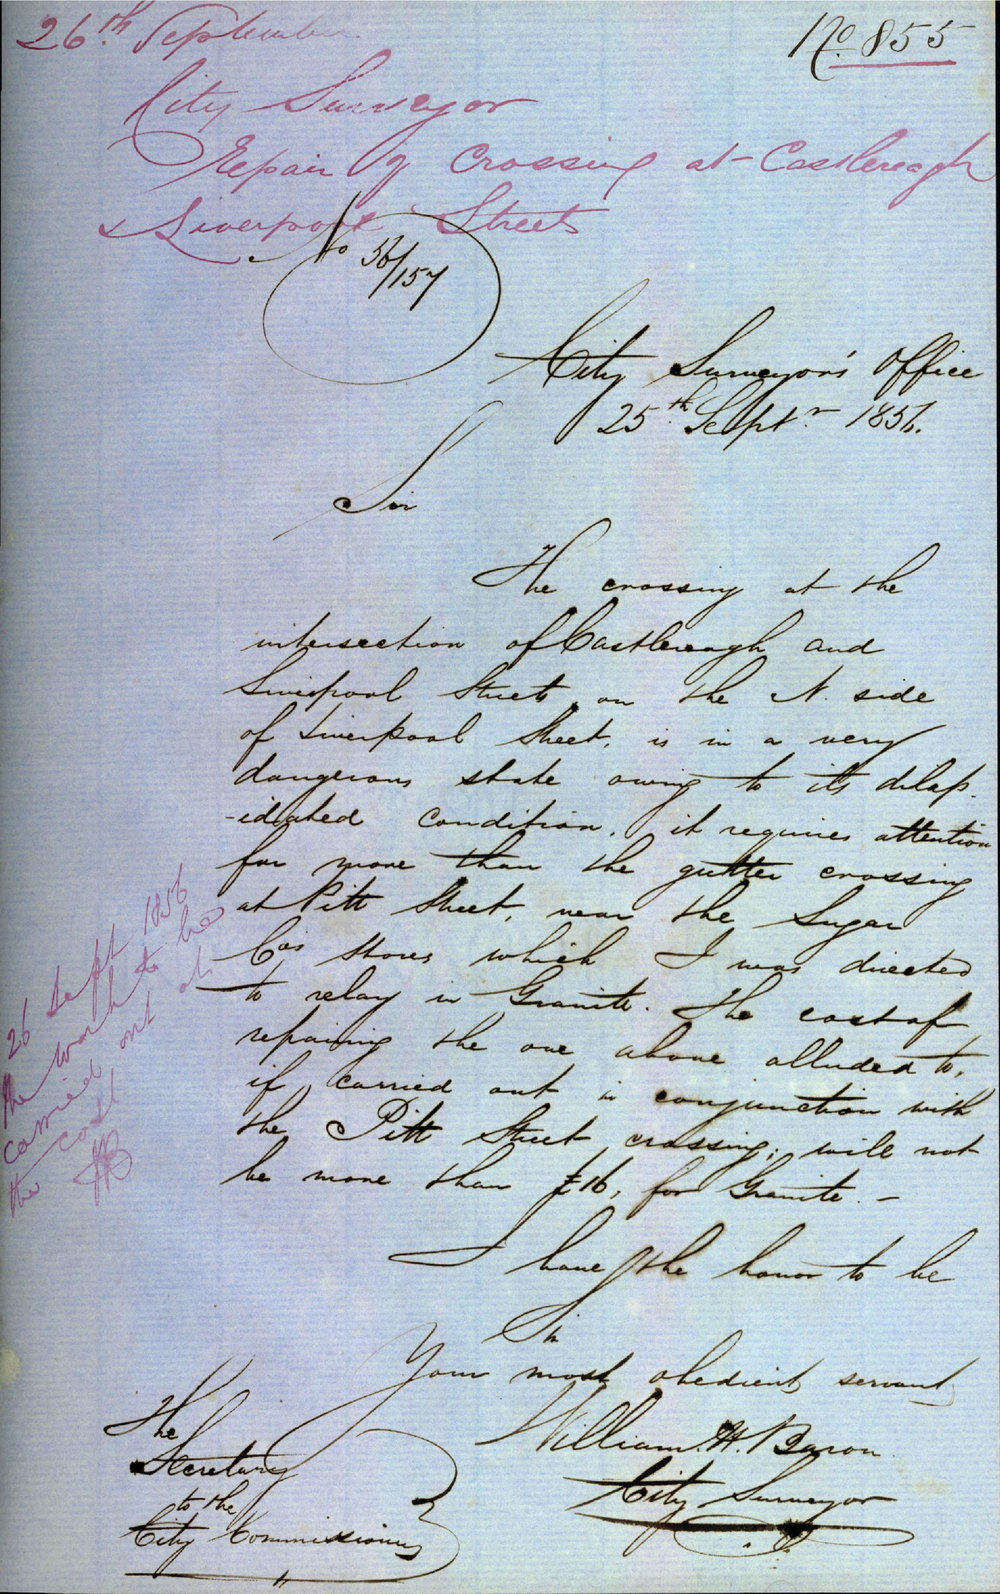 26th September
No 855
City Surveyor
Repair of Crossing at Castlereagh
& Liverpool Streets
No 56/157
City Surveyor's Office
25th Septr 1856.
Sir
The crossing at the
intersection of Castlereagh and
Liverpool Streets, on the N. side
of Liverpool Street, is in a very
dangerous state owing to its dilap-
-idated condition, it requires attention
far more than the gutter crossing
at Pitt Street, near the Sugar
Co's stores which I was directed
to relay in Granite. The cost of
repairing the one above alluded to,
if carried out in conjunction with
the Pitt Street crossing, will not
be more than £16, for Granite. –
I have the honor to be
Sir
Your most obedient servant
William. H. Baron
City Surveyor
The
Secretary
to the
City Commissioners
26 Sept 1856
the work to be
carried out at
the cost